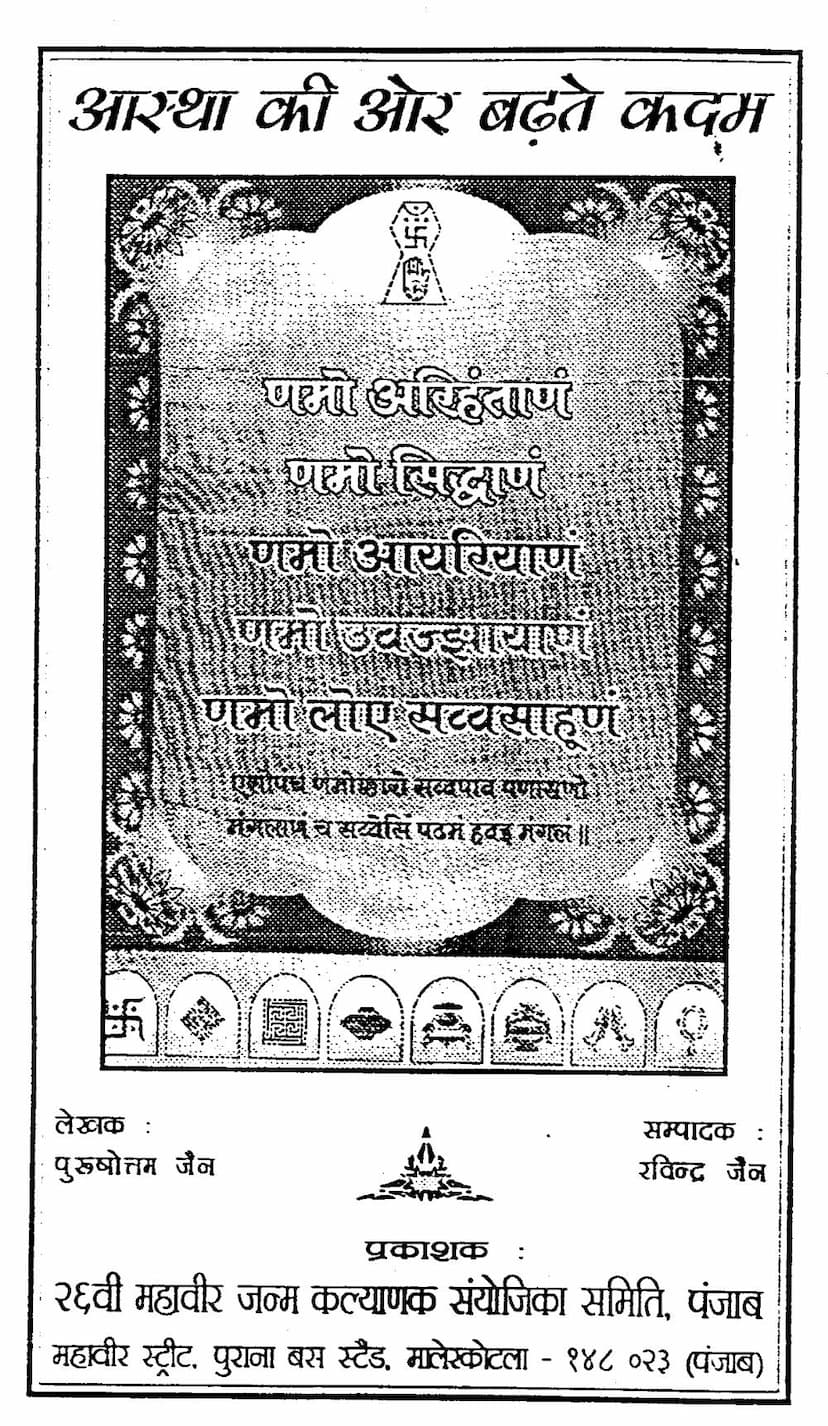 आस्था की ओर बढ़ते कदम
णमो अरिहंताणं
णमो सिद्धाणं
णमो आयरियाणं
णमो उवज्झायाणं
णमो लोए सव्वसाहूणं
एसोपंच णमोक्कारो सव्वपाव पणासणो।
मंगलाणं च सव्वेसिं पढमं हवइ मंगलं॥
लेखक :
पुरूषोत्तम जैन
सम्पादक :
रविन्द्र जैन
प्रकाशक :
२६वी महावीर जन्म कल्याणक संयोजिका समिति, पंजाब
महावीर स्ट्रीट, पुराना बस स्टैड, मालेरकोटला - १४८ ०२३ (पंजाब)